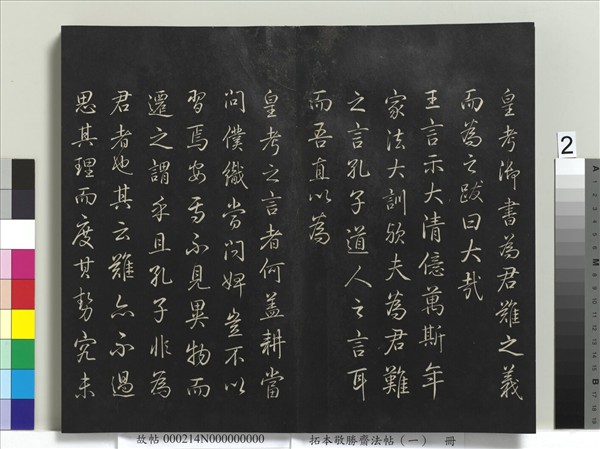 皇考御書為君難之義
而為之跋曰大哉
王言示大清億萬斯年
家法大訓欤夫為君難
之言孔子道人之言耳
而吾直以為
皇考之言者何蓋耕當
问僕織當问婢豈不以
習焉安焉不見異物而
遷之謂乎且孔子非為
君者也其云難亦不過
思其理而度其勢究未
2
故帖 000214N000000000 拓本敬勝齋法帖（一） 冊